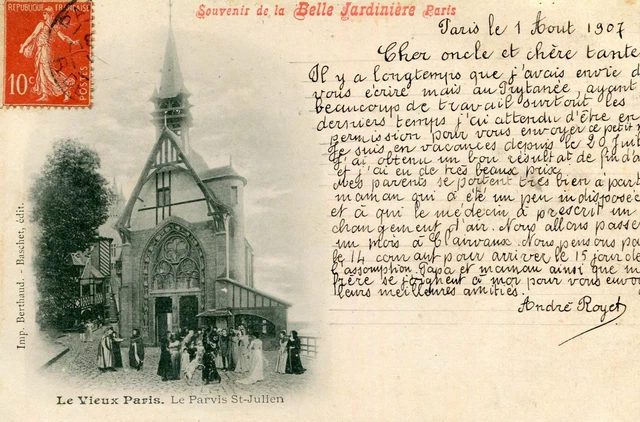 Souvenir de la Belle Jardinière Paris
REPUBLIQUE FRANÇAISE
10c
POSTES
Paris le 1 Aout 1907
Cher oncle et chère tante
Il y a longtemps que j'avais envie d
vous écrire mais au Prytanée, ayant
beaucoup de travail surtout les
derniers temps j'ai attendu d'être en
permission pour vous envoyer ce petit
Je suis en vacances depuis le 20 Juil
J'ai obtenu un bon résultat de fin d'a
et j'ai eu de très beaux prix.
Mes parents se portent très bien a part
maman qui a été un peu indisposée
et à qui le médecin à prescrit un
changement d'air. Nous allons passe
un mois à Clairvaux. Nous pensons pa
le 14 courant pour arriver le 15 jour de
l'assomption. Papa et maman ainsi que m
frère se joignent à moi pour vous envo
leurs meilleures amitiés.
André Royet
Imp. Berthaud. - Baschet, édit.
Le Vieux Paris. Le Parvis St-Julien